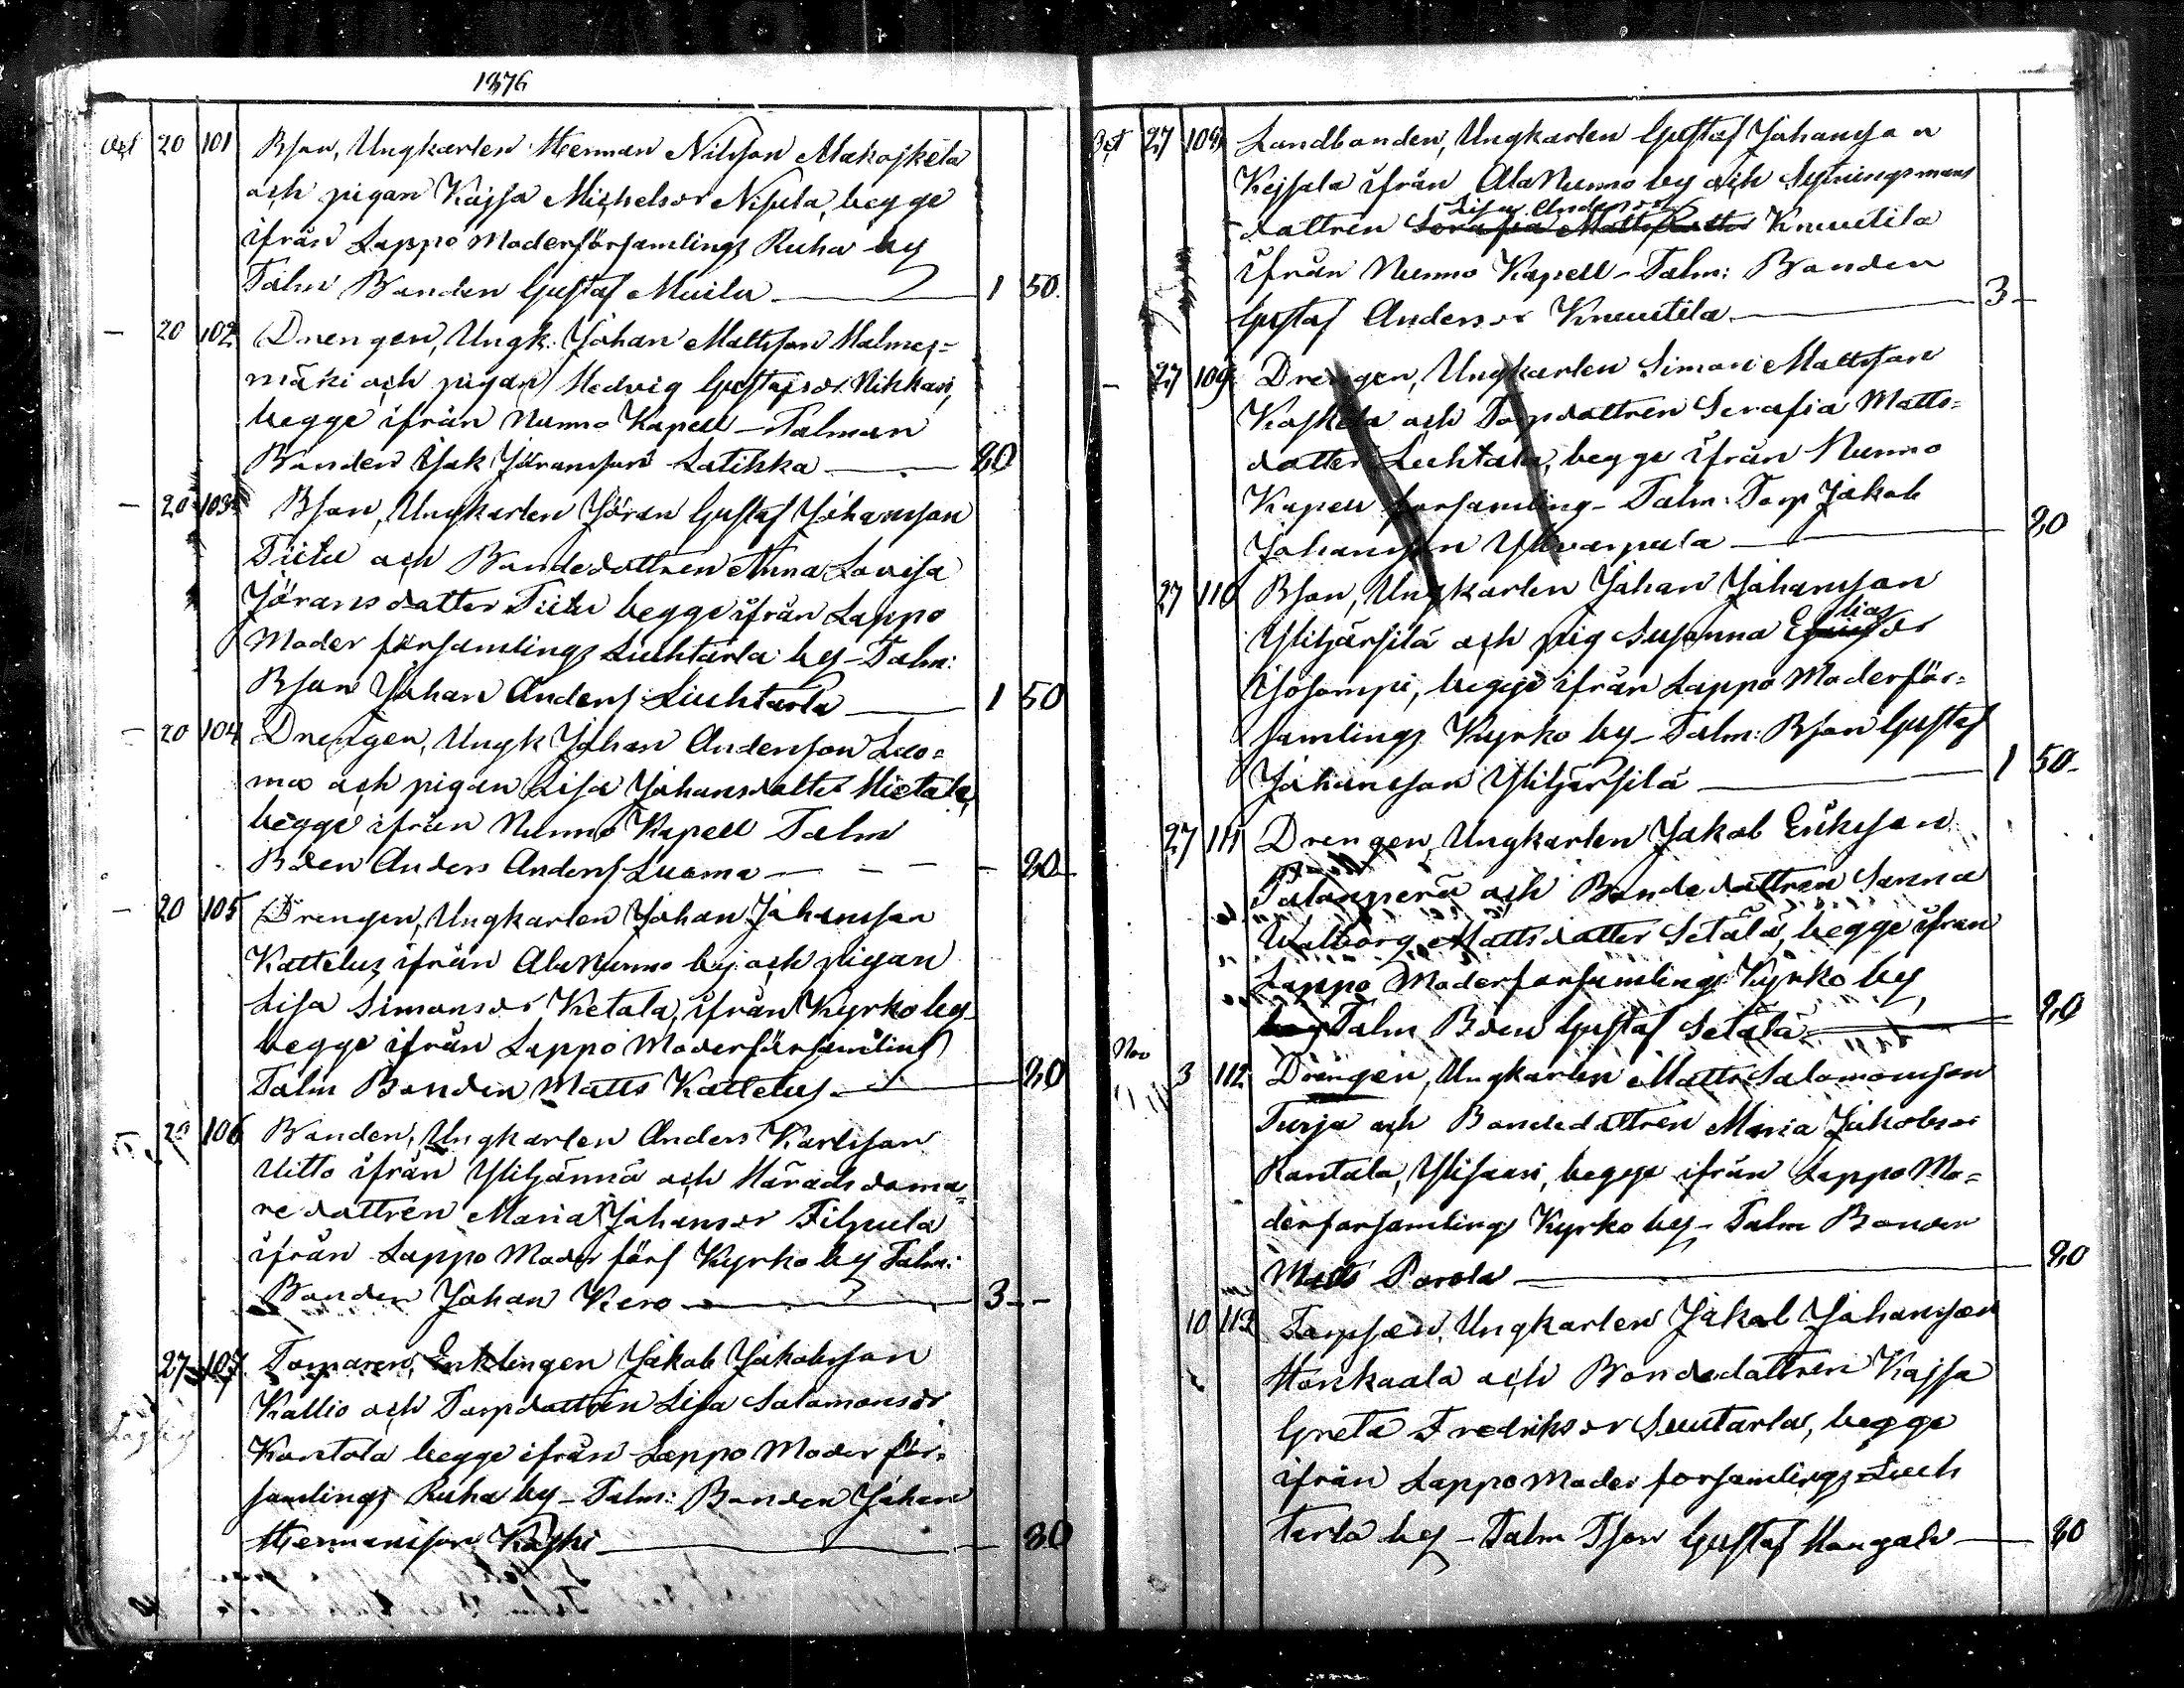 1876
Oct 20 101 Bson, Ungkarlen Herman Nilsson Alakojkela
och pigan Kajsa Michelsdr Nisula, begge
ifrån Lappo Moderförsamlings Ruha by
Talm Bonden Gustaf Muilu — 1 50.
— 20 102 Drengen, Ungk. Johan Mattsson Malmes=
mäki och pigan Hedvig Gustafsdr Nikkari,
begge ifrån Nurmo Kapell — Talman
Bonden Isak Jöransson Latikka — 80
— 20 103 Bson, Ungkarlen Jöran Gustaf Johansson
Tiitu och Bondedottren Anna Lovisa
Jöransdotter Tiitu begge ifrån Lappo
Moder församlings Liuhtarla by — Talm:
Bson Johan Anders Liuhtarla — 1 50
— 20 104 Drengen, Ungk Johan Andersson Luo=
ma och pigan Lisa Johansdotter Hietala,
begge ifrån Nurmo Kapell Talm
Bden Anders Anders Luoma — 80
— 20 105 Drengen, Ungkarlen Johan Johansson
Kattelus ifrån Ala Nurmo by och pigan
Lisa Simonsdr Ketala, ifrån Kyrko by
begge ifrån Lappo Moderförsamling
Talm Bonden Matts Kattelus — 80
20 106 Bonden, Ungkarlen Anders Karlsson
Uitto ifrån Ylihärmä och Häradsdoma=
re dottren Maria Johansdr Filpula
ifrån Lappo Moder förs Kyrko by Talm:
Bonden Johan Kero — 3 - -
27 107 Torparen, Enklingen Jakob Jakobsson
Kallio och Torpdottren Lisa Salomonsdr
Kantola begge ifrån Lappo Moder för=
samlings Ruha by — Talm: Bonden Johan
Hermansson Koski — 80
Oct 27 108 Landbonden, Ungkarlen Gustaf Johansson
Kejsala ifrån Ala Nurmo by och Sytningsmans
Lisa Andersdr
dottren Serafia Mattsdotter Knuutila
ifrån Nurmo Kapell — Talm: Bonden
Gustaf Andersson Knuutila — 3 -
— 27 109 Drengen, Ungkarlen Simon Mattsson
Koskela och Torpdottren Serafia Matts=
dotter Luhtala, begge ifrån Nurmo
Kapell forsamling — Talm: Torp Jakob
Johansson Ylivarpula — 80
27 110 Bson, Ungkarlen Johan Johansson
lias
Ylihärsilä och pig Susanna E dr
Isosompi, begge ifrån Lappo Moderför=
samlings Kyrko by — Talm: Bson Gustaf
Johansson Ylihärsilä — 1 50-
27 111 Drengen, Ungkarlen Jakob Eriksson
Palonperä och Bondedottren Sanna
Walborg Mattsdotter Setälä, begge ifrån
Lappo Moderforsamlings Kyrko by
Talm Bden Gustaf Setälä — 80
Nov
3 112 Drengen, Ungkarlen Matts Salomonsson
Turja och Bondedottren Maria Jakobsdr
Rantala, Ylisaari, begge ifrån Lappo Mo=
derforsamlings Kyrko by — Talm Bonden
Matts Porola — 80
10 113 Torpson, Ungkarlen Jakob Johansson
Honkaala och Bondedottren Kajsa
Greta Fredriksdr Suutarla, begge
ifrån Lappo Moder forsamlings Liuh
tarla by — Talm Tson Gustaf Hongala — 80